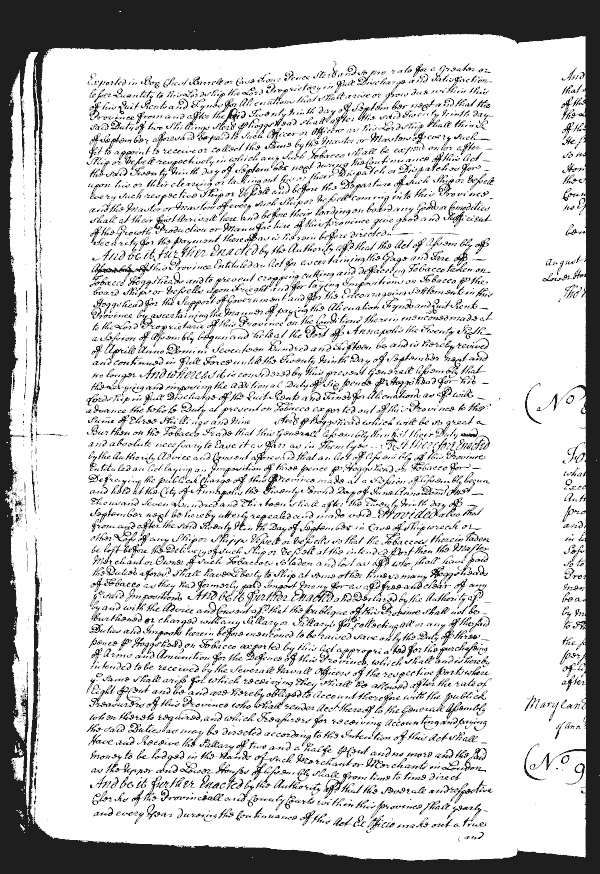 Exported in Box Chest Barrell or Case Nine Pence Sterl and so pro rato for a Greater or
lesser Quantity to his Lordship the Lord Proprietary in full Discharge and Satisfaction
of his Quit Rents and Fynes for Alienations that shall arise or grow due within this
Province from and after the said Twenty Ninth day of September next and that the
said Duty of two Shillings Sterl p Hogshead shall after the said Twenty Ninth day
of September aforesaid be paid to such Officer or Officers as his Lordship shall think
fit to appoint to receive or collect the Same by the Master or Masters of every such
Ship or Vessell respectively in which any such Tobacco shall be exported on or after
the said Twenty Ninth day of September next during the Continuance of this Act
upon his or their clearing or taking out his or their Dispatch or Dispatches for
every such respective Ship or Vessell and before the Departure of such Ship or Vessell
and the Master or Masters of every such Ship or Vessell coming into this Province
shall at their first Arrivall here and before their landing on board any Goods or Comodities
of the Growth Production or Manufacture of this Province give good and Sufficient
Security for the payment thereof as is herein before directed
And be it further Enacted by the Authority aforesd that the Act of Assembly of
this Province Entituled an Act for ascertaining the Gage and Tare of
Tobacco Hogsheads and to prevent cropping cutting and defacing Tobacco taken on
board Ships or Vessells upon freight and for laying Impositions on Tobacco p the
Hogshead for the Support of Government and for the Encouraging Settlement in this
Province by ascertaining the Manner of paying the Alienation Fynes and Quit Rents
to the Lord Proprietarie of this Province on the Conditions therein mentioned made at
a Session of Assembly begun and held at the Port of Annapolis the Twenty Sixth
of Aprill Anno Domini Seventeen Hundred and Fifteen be and is hereby revived
and continued in full Force untill the Twenty Ninth Day of September next and
no longer And whereas it is considered by this present Generall Assembly that
the Laying and imposing the additional Duty of Six pence p Hogshead for his
Lordship in full Discharge of the Quit Rents and Fines for Alienations as afd will
advance the whole Duty at present on Tobacco exported out of this Province to the
Sume of three Shillings and Nine p Hogshead which will be so great a
Burthen on the Tobacco Trade that this Generall Assembly think it their Duty
and absolute necessary to Ease it as farr as in them lyes Be it therefore Enacted
by the Authority Advice and Consent aforesaid that an Act of Assembly of this Province
Entituled an Act laying an Imposition of three pence p Hogshead on Tobacco for
Defraying the publick Charge of this Province made at a Session of Assembly begun
and held at the City of Annapolis the Twenty Second Day of June Anno Domini One
Thousand Seven Hundred and Thirteen shall after the Twenty Ninth day of
September next be hereby utterly repealed and made void Provided also that
from and after the said Twenty Ninth Day of September in Case of Shipwreck or
other Loss of any Ship or Shipps Vessell or Vessells so that the Tobaccos therein laden
be lost before the Delivery of such Ship or Vessell at the intended port then the Master
Merchant or Owner of such Tobaccos so laden and lost as afd who shall have paid
the Duties aforesd shall have Liberty to Ship at some other time so many Hogsheads
of Tobacco as they had formerly paid Impost money for as afd free and clear of any
p said Impositions And be it further Enacted and declared by the Authority afd
by and with the Advice and Consent afd that the publique of this Province shall not be
burthened or charged with any Sallary or Sallarys for Collecting all or any of the said
Duties and Imposts herein before mentioned to be raised save only the Duty of three
pence p Hogshead on Tobacco exported by this Act appropriated for the purchasing
of Arms and Amunition for the Defence of this Province, which shall and is hereby
intended to be received by the Severall Navall Officers of the respective Ports where
p same shall arise for which receiving they shall be allowed after the rate of
Eight p Cent and be and are hereby obliged to Account therefore with the publick
Treasurers of this Province who shall render Acct thereof to the Generall Assembly
when thereto required, and which Treasurers for receiving Accounting and paying
the said Duties as may be directed according to the Intention of this Act shall
Have and Receive the Sallary of two and a halfe p Cent and no more and the said
money to be lodged in the Hands of such Merchant or Merchants in London
as the Upper and Lower Houses of Assembly shall from time to time direct
And be it further Enacted by the Authority afd that the severall and respective
Clerks of the Provinciall and County Courts within this Province shall yearly
and every Year during the Continuance of this Act Ex Officio make out a true
and
And
that
of the
August
Lower Hou
(No 8
what
Mary Land
(No 9